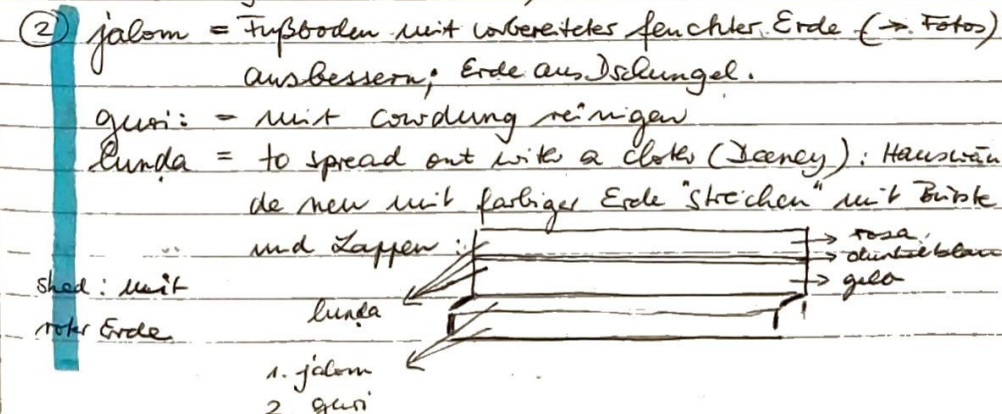 ② jalom = Fußboden mit vorbereiteter feuchter Erde (→ Fotos)
ausbessern; Erde aus Dschungel.
guri: = mit cowdung reinigen
lunda = to spread out with a cloth (Deeney): Hauswän
de neu mit farbiger Erde "streichen" mit Bürste
und Lappen:
→ rosa
→ dunkelblau
→ gelb
shed: mit
roter Erde
lunda
1. jalom
2. guri